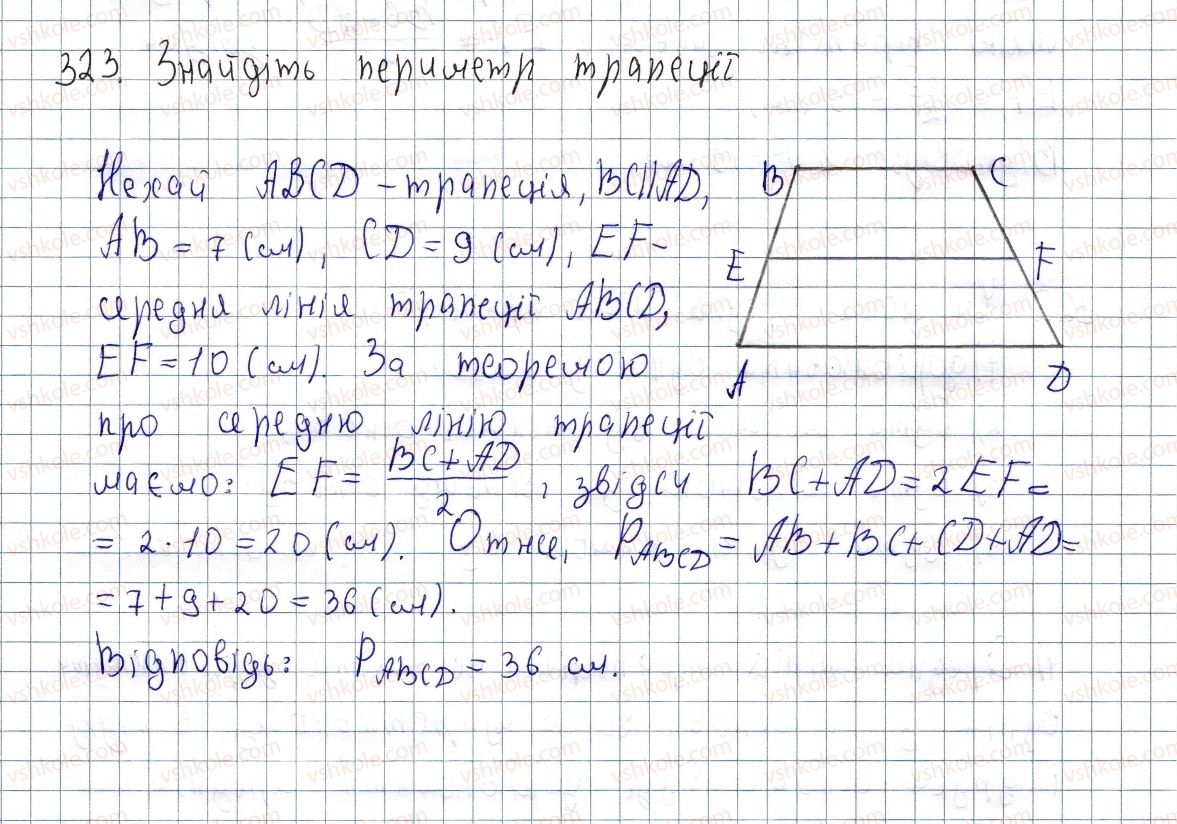 323. Знайдіть периметр трапеції
Нехай ABCD – трапеція, BC||AD,
AB = 7 (см), CD = 9 (см), EF –
середня лінія трапеції ABCD,
EF = 10 (см). За теоремою
про середню лінію трапеції
маємо: EF = (BC + AD)/2, звідси BC + AD = 2EF =
= 2 · 10 = 20 (см). Отже, P_ABCD = AB + BC + CD + AD =
= 7 + 9 + 20 = 36 (см).
Відповідь: P_ABCD = 36 см.
B C
E F
A D
vshkole.com